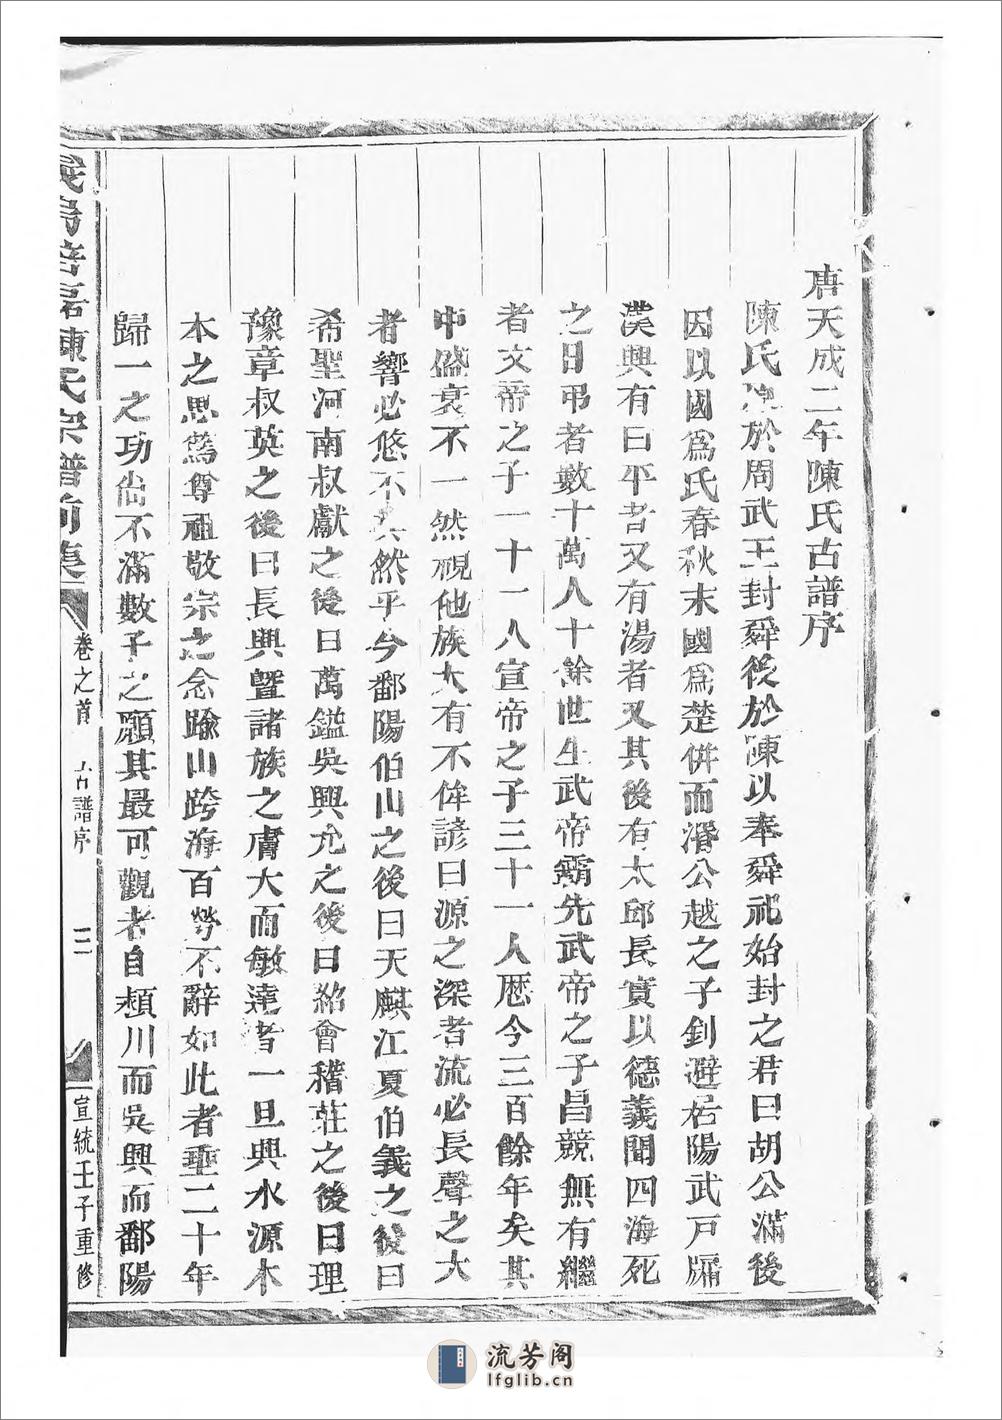 唐天成二年陳氏古譜序
陳氏於周武王封舜後於陳以奉舜祀始封之君曰胡公滿後
因以國爲氏春秋末國爲楚併而湣公越之子釗避居陽武戸牖
漢興有曰平者又有湯者又其後有太邱長寔以德義聞四海死
之日弔者數十萬人十餘世生武帝霸先武帝之子昌競無有繼
者文帝之子一十一人宣帝之子三十一人歷今三百餘年矣其
中盛衰不一然視他族大有不侔諺曰源之深者流必長聲之大
者響必悠不其然乎今鄱陽伯山之後曰天麒江夏伯義之後曰
希聖河南叔獻之後曰萬鎰吳興允之後曰紹會稽莊之後曰理
豫章叔英之後曰長興曁諸族之膚大而敏達者一旦興水源木
本之思篤尊祖敬宗之念踰山跨海百勞不辭如此者垂二十年
歸一之功尙不滿數子之願其最可觀者自頖川而吳興而鄱陽
陳氏宗譜前集
卷之首
古譜序
三
宣統壬子重修
流芳阁
lfglib.cn